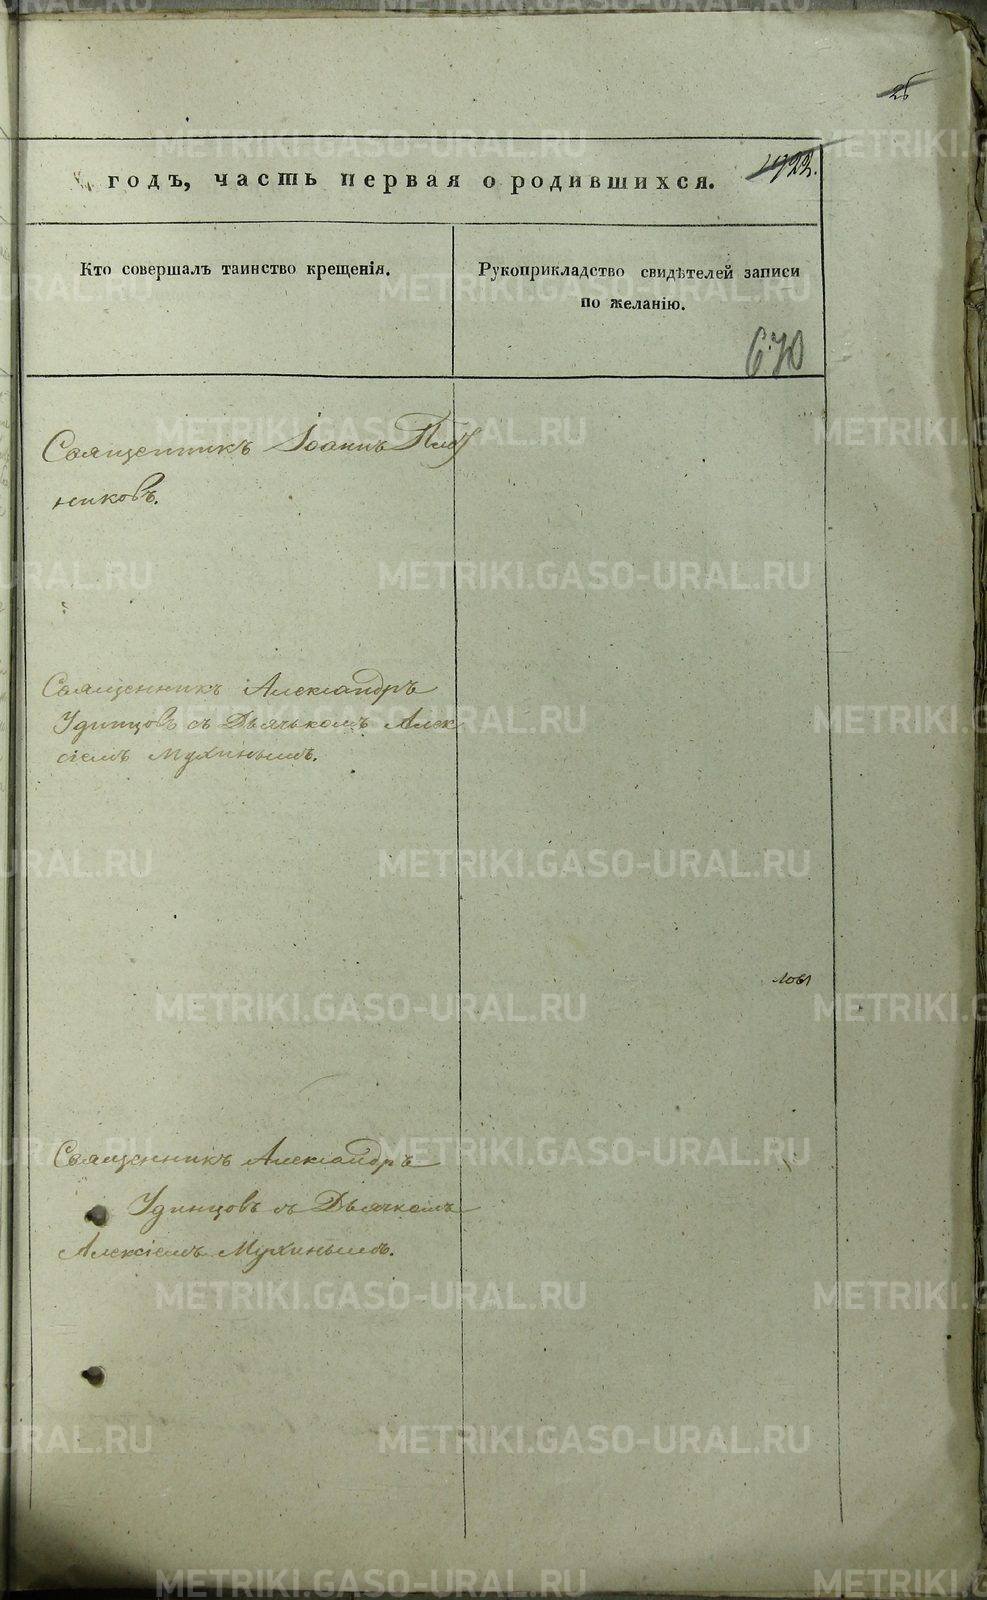 25
годъ, часть первая о родившихся.
Кто совершалъ таинство крещенія.
Рукоприкладство свидѣтелей записи
по желанію.
670
Священникъ Іоаннъ
никовъ.
Священникъ Александръ
Удинцовъ съ Дьячькомъ Алек
сіемъ Мухинымъ.
Священникъ Александръ
Удинцовъ съ Дьячкомъ
Алексіемъ Мухинымъ.
METRIKI.GASO-URAL.RU